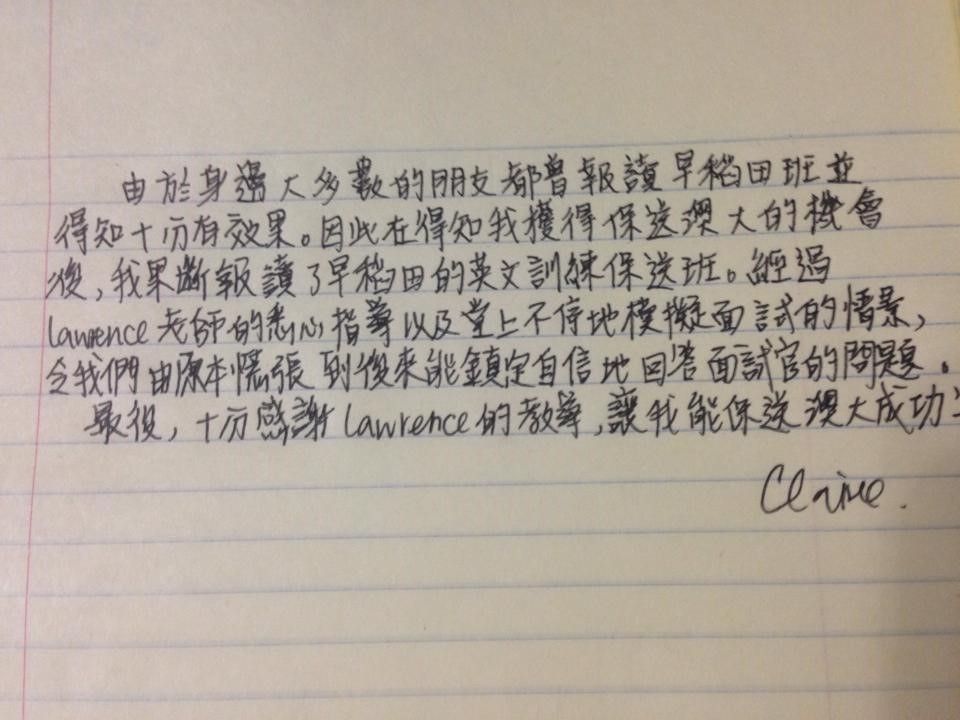 由於身邊大多數的朋友都曾報讀早稻田班並
得知十分有效果。因此在得知我獲得保送澳大的機會
後,我果斷報讀了早稻田的英文訓練保送班。經過
Lawrence老師的悉心指導以及堂上不停地模擬面試的情景,
令我們由原本慌張到後來能鎮定自信地回答面試官的問題。
最後,十分感謝Lawrence的教導,讓我能保送澳大成功
Claire.